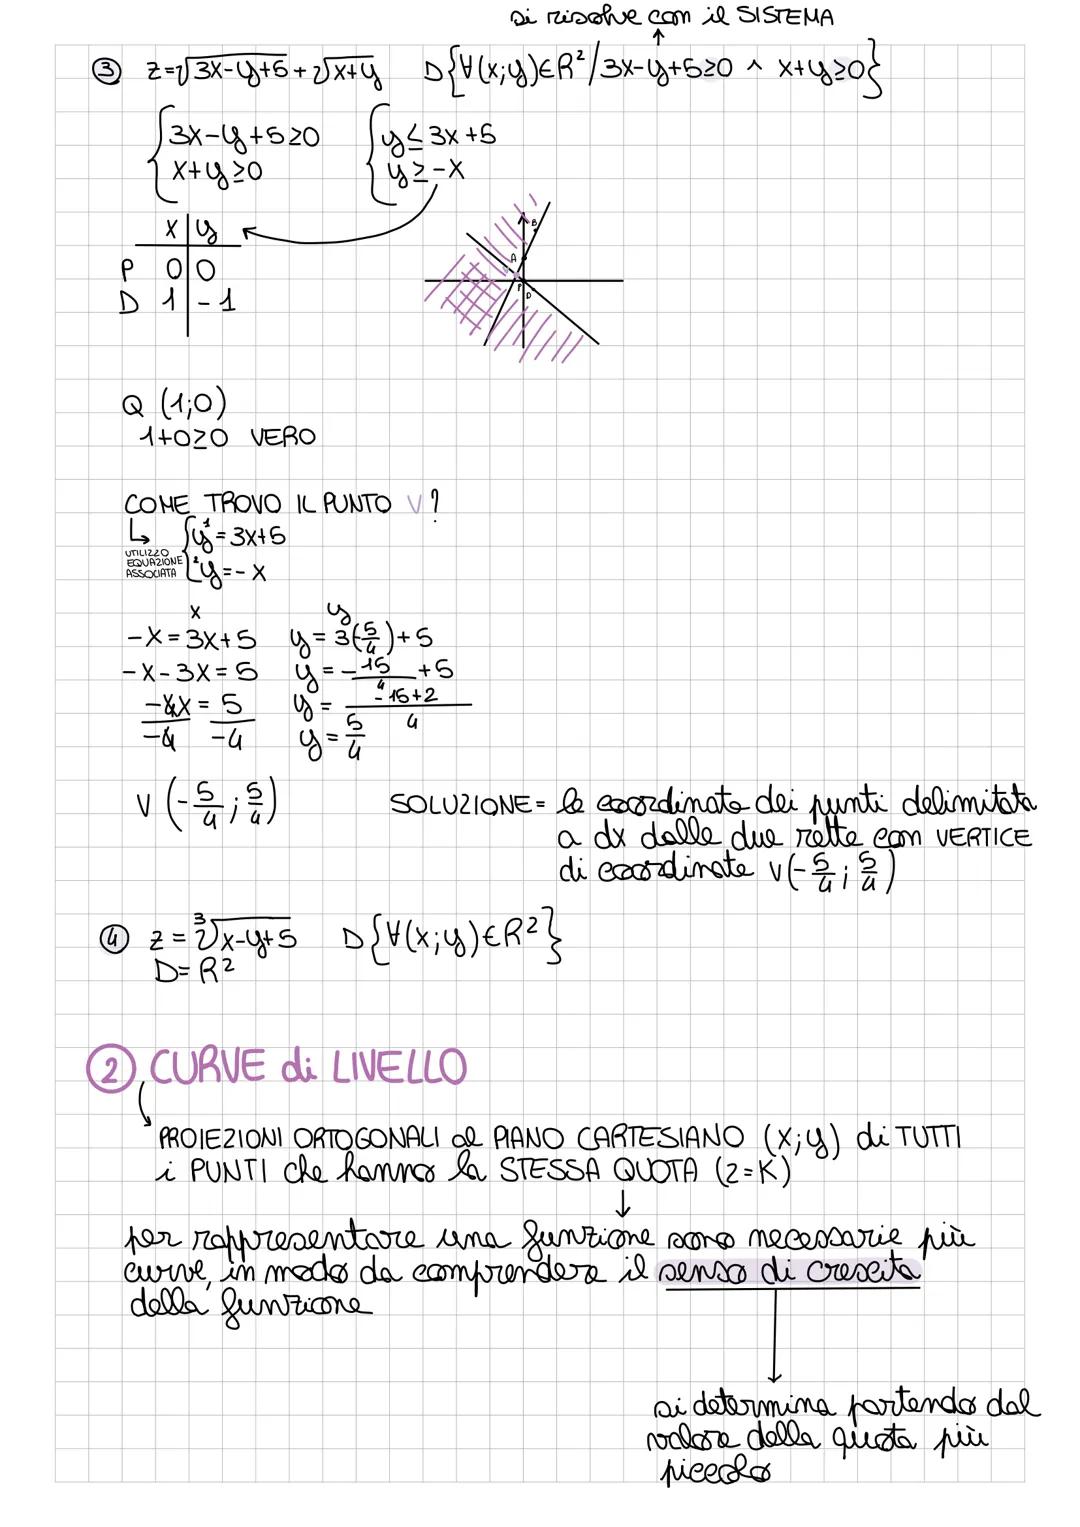 si risolve con il SISTEMA
③ z=√3x-y+5 + √x+y D{∀(x;y)∈R²/3x-y+5≥0 ∧ x+y≥0}
{3x-y+5≥0 {y≤3x+5
x+y≥0 y≥-x
x y
P 0 0
D 1 -1
B
A
P
D
Q (1;0)
1+0≥0 VERO
COME TROVO IL PUNTO V?
↳ {¹y=3x+5
UTILIZZO EQUAZIONE ASSOCIATA ²y=-x
x y
-x=3x+5 y=3(5/4)+5
-x-3x=5 y=-15/4+5
-4x/-4=5/-4 y=-15+2/4
y=5/4
V (-5/4;5/4)
SOLUZIONE= le coordinate dei punti delimitata
a dx dalle due rette con VERTICE
di coordinate V(-5/4;5/4)
④ z=³√x-y+5 D{∀(x;y)∈R²}
D=R²
② CURVE di LIVELLO
PROIEZIONI ORTOGONALI al PIANO CARTESIANO (x;y) di TUTTI
i PUNTI che hanno la STESSA QUOTA (z=K)
per rappresentare una funzione sono necessarie più
curve, in modo da comprendere il senso di crescita
della funzione
si determina partendo dal
valore della quota più
piccolo